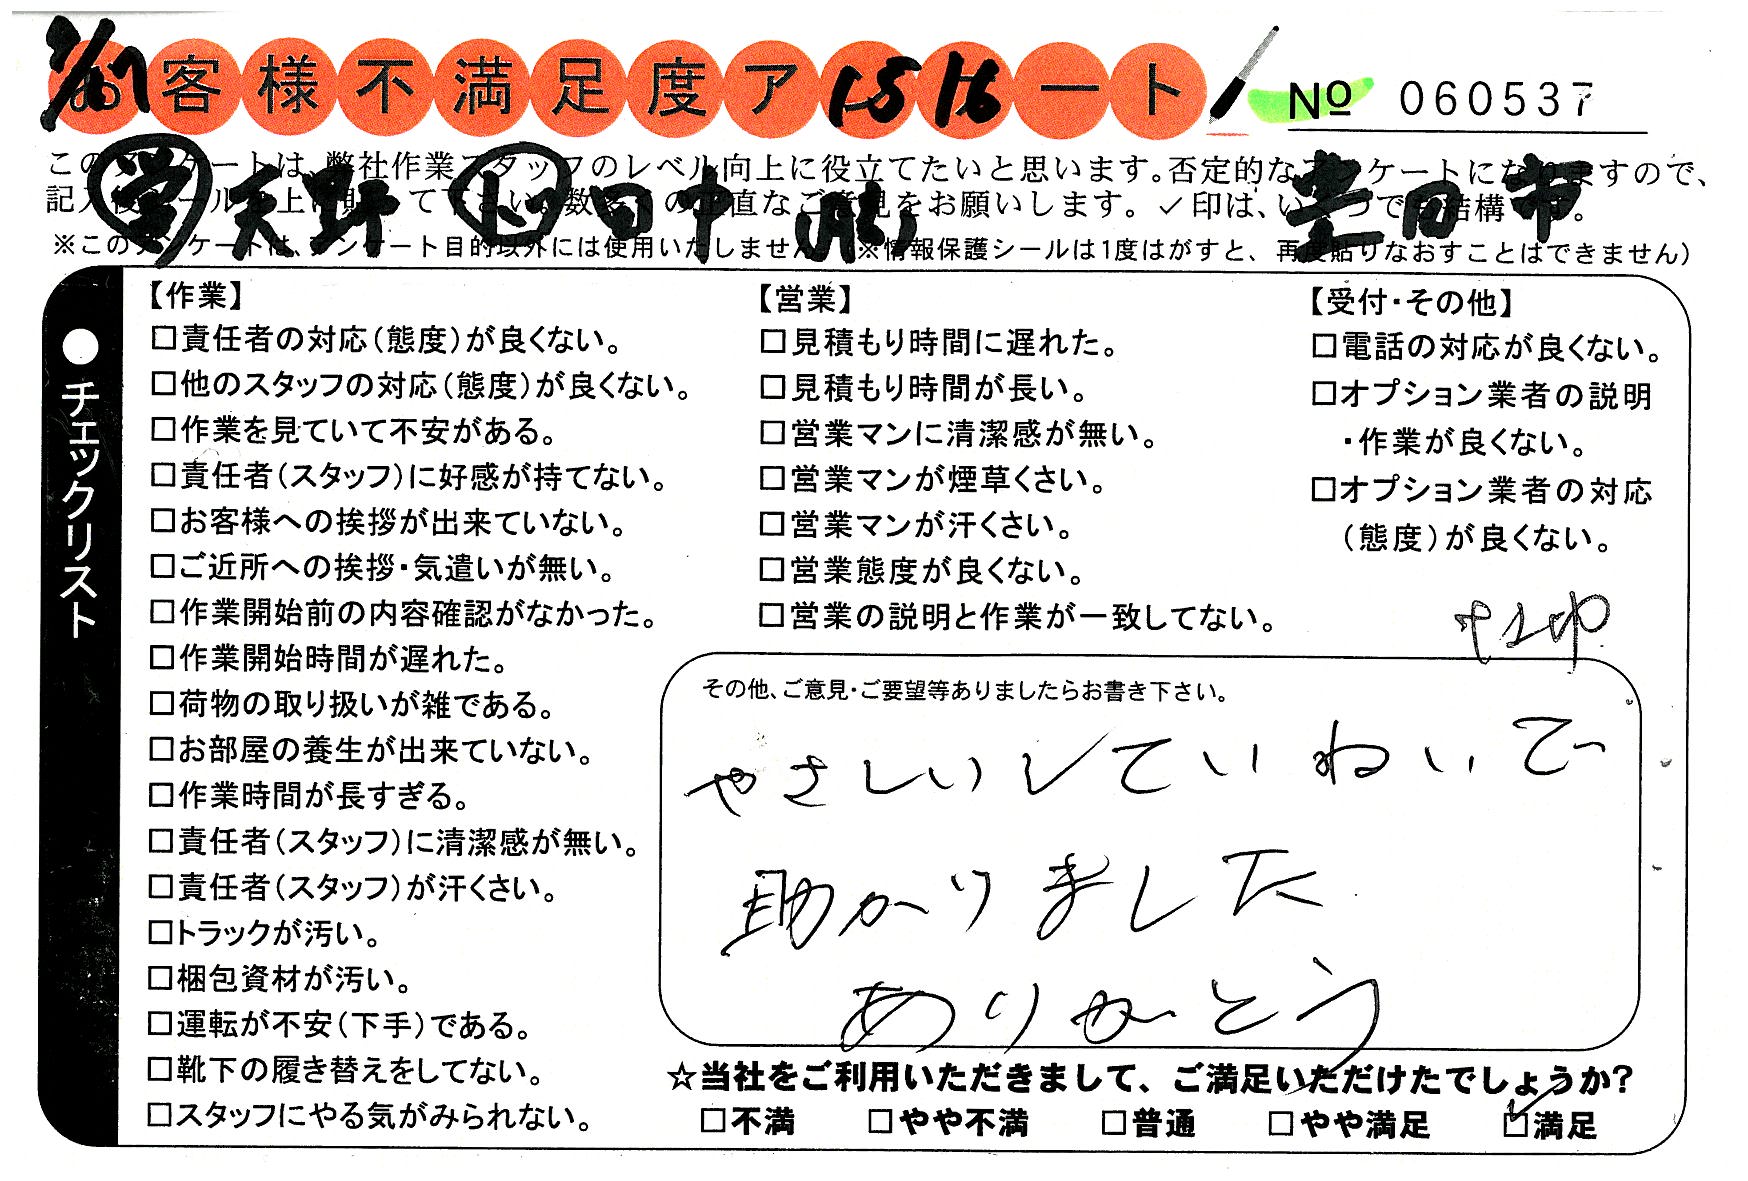 お客様不満足度アンケート
1516
No 060537
このアンケートは、弊社作業スタッフのレベル向上に役立てたいと思います。否定的なアンケートになりますので、
記入後シール
て下さい。数多くの正直なご意見をお願いします。✓印は、いくつでも結構です。
㊂天野 田中
豊田市
※このアンケートは、アンケート目的以外には使用いたしません。(※情報保護シールは1度はがすと、再度貼りなおすことはできません)
●チェックリスト
【作業】
□責任者の対応(態度)が良くない。
□他のスタッフの対応(態度)が良くない。
□作業を見ていて不安がある。
□責任者(スタッフ)に好感が持てない。
□お客様への挨拶が出来ていない。
□ご近所への挨拶・気遣いが無い。
□作業開始前の内容確認がなかった。
□作業開始時間が遅れた。
□荷物の取り扱いが雑である。
□お部屋の養生が出来ていない。
□作業時間が長すぎる。
□責任者(スタッフ)に清潔感が無い。
□責任者(スタッフ)が汗くさい。
□トラックが汚い。
□梱包資材が汚い。
□運転が不安(下手)である。
□靴下の履き替えをしてない。
□スタッフにやる気がみられない。
【営業】
□見積もり時間に遅れた。
□見積もり時間が長い。
□営業マンに清潔感が無い。
□営業マンが煙草くさい。
□営業マンが汗くさい。
□営業態度が良くない。
□営業の説明と作業が一致してない。
【受付・その他】
□電話の対応が良くない。
□オプション業者の説明
・作業が良くない。
□オプション業者の対応
(態度)が良くない。
その他、ご意見・ご要望等ありましたらお書き下さい。
やさしいしていねいで
助かりました
ありがとう
☆当社をご利用いただきまして、ご満足いただけたでしょうか?
□不満 □やや不満 □普通 □やや満足 ☑満足